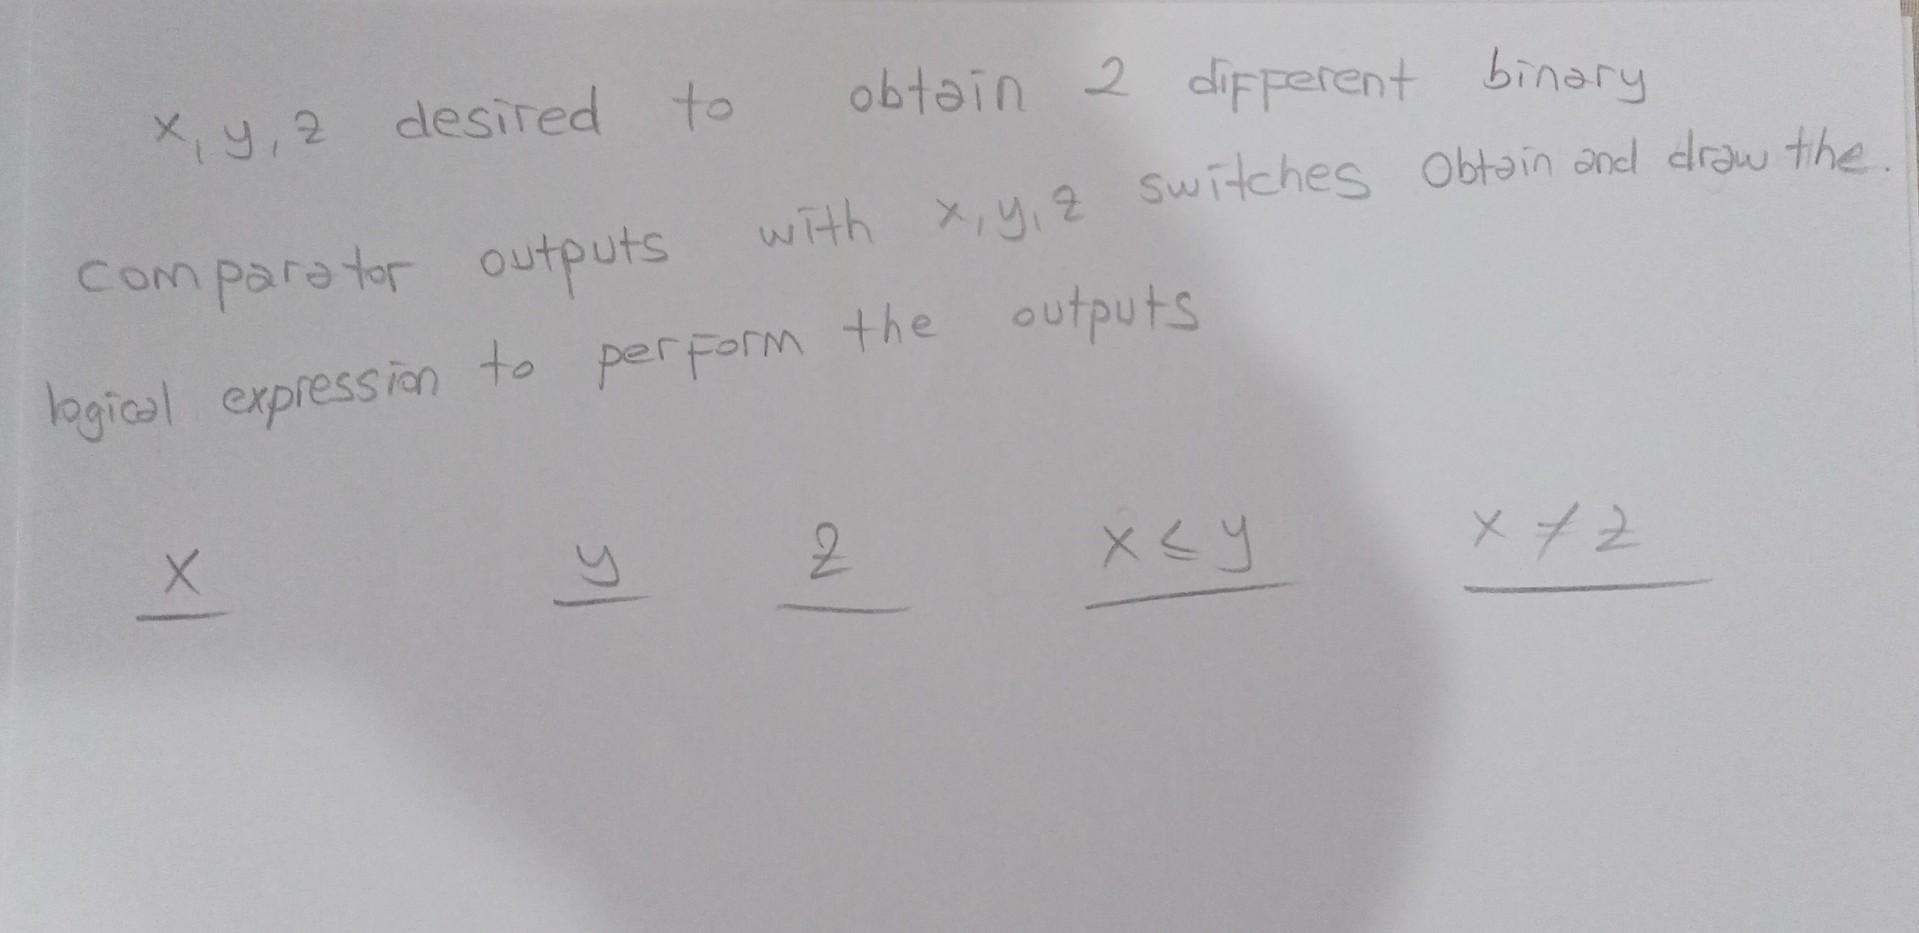 x, y, z desired to obtain 2 different binary
comparator outputs with x, y, z switches Obtain and draw the.
logical expression to perform the outputs
x y z x ≤ y x ≠ z